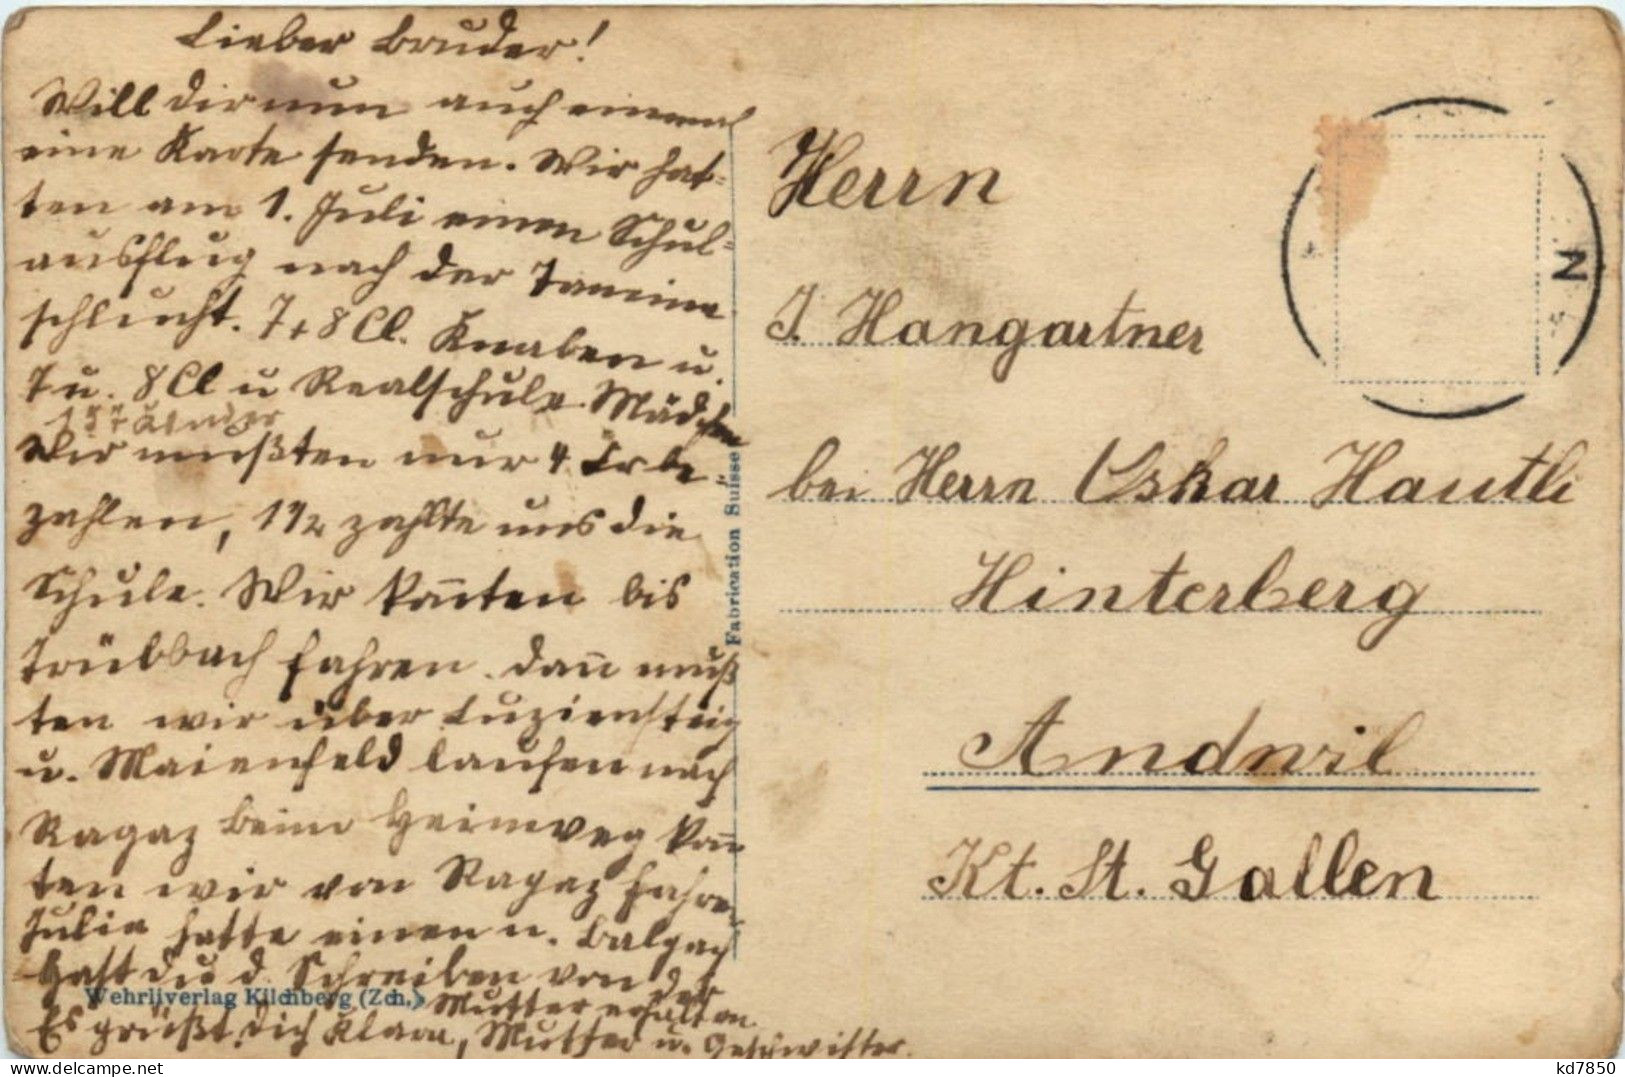 Lieber Bruder!
Will dir nun auch einmal
eine Karte senden. Wir hat-
ten am 1. Juli einen Schul-
ausflug nach der Tamina
schlucht. 7 + 8 Cl. Knaben u.
7 u. 8 Cl u Realschule. Mädchen
Kinder
Wir mußten nur 4 Fr be
zahlen, 1 1/2 zahlte uns die
Schule. Wir kon̄ten bis
Trübbach fahren. dan̄ muß
ten wir über Luziensteig
u. Maienfeld laufen nach
Ragaz beim Heimweg kon̄
ten wir von Ragaz fahren
Julie hatte einen n. Balgach
Hast du d. Schreiben von der
Mutter erhalten
Es grüßt dich Klara, Mutter u. Geschwister.
Wehrliverlag Kilchberg (Zch.)
Fabrication Suisse
Herrn
J. Hangartner
bei Herrn Oskar Hautli
Hinterberg
Andwil
Kt. St. Gallen
N
kd7850